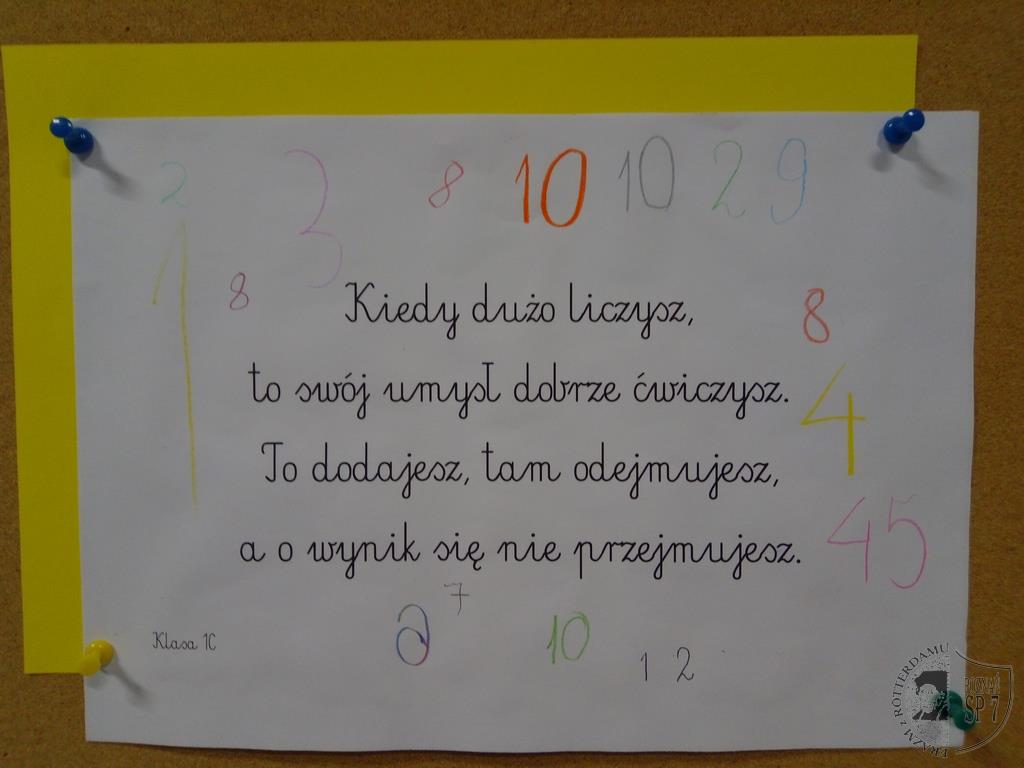 2 3 8 10 10 2 9
1 8
Kiedy dużo liczysz,
8
to swój umysł dobrze ćwiczysz.
4
To dodajesz, tam odejmujesz,
45
a o wynik się nie przejmujesz.
7
10
Klasa 1C
1 2
ERAZM z ROTTERDAMU
POZNAŃ
SP 7